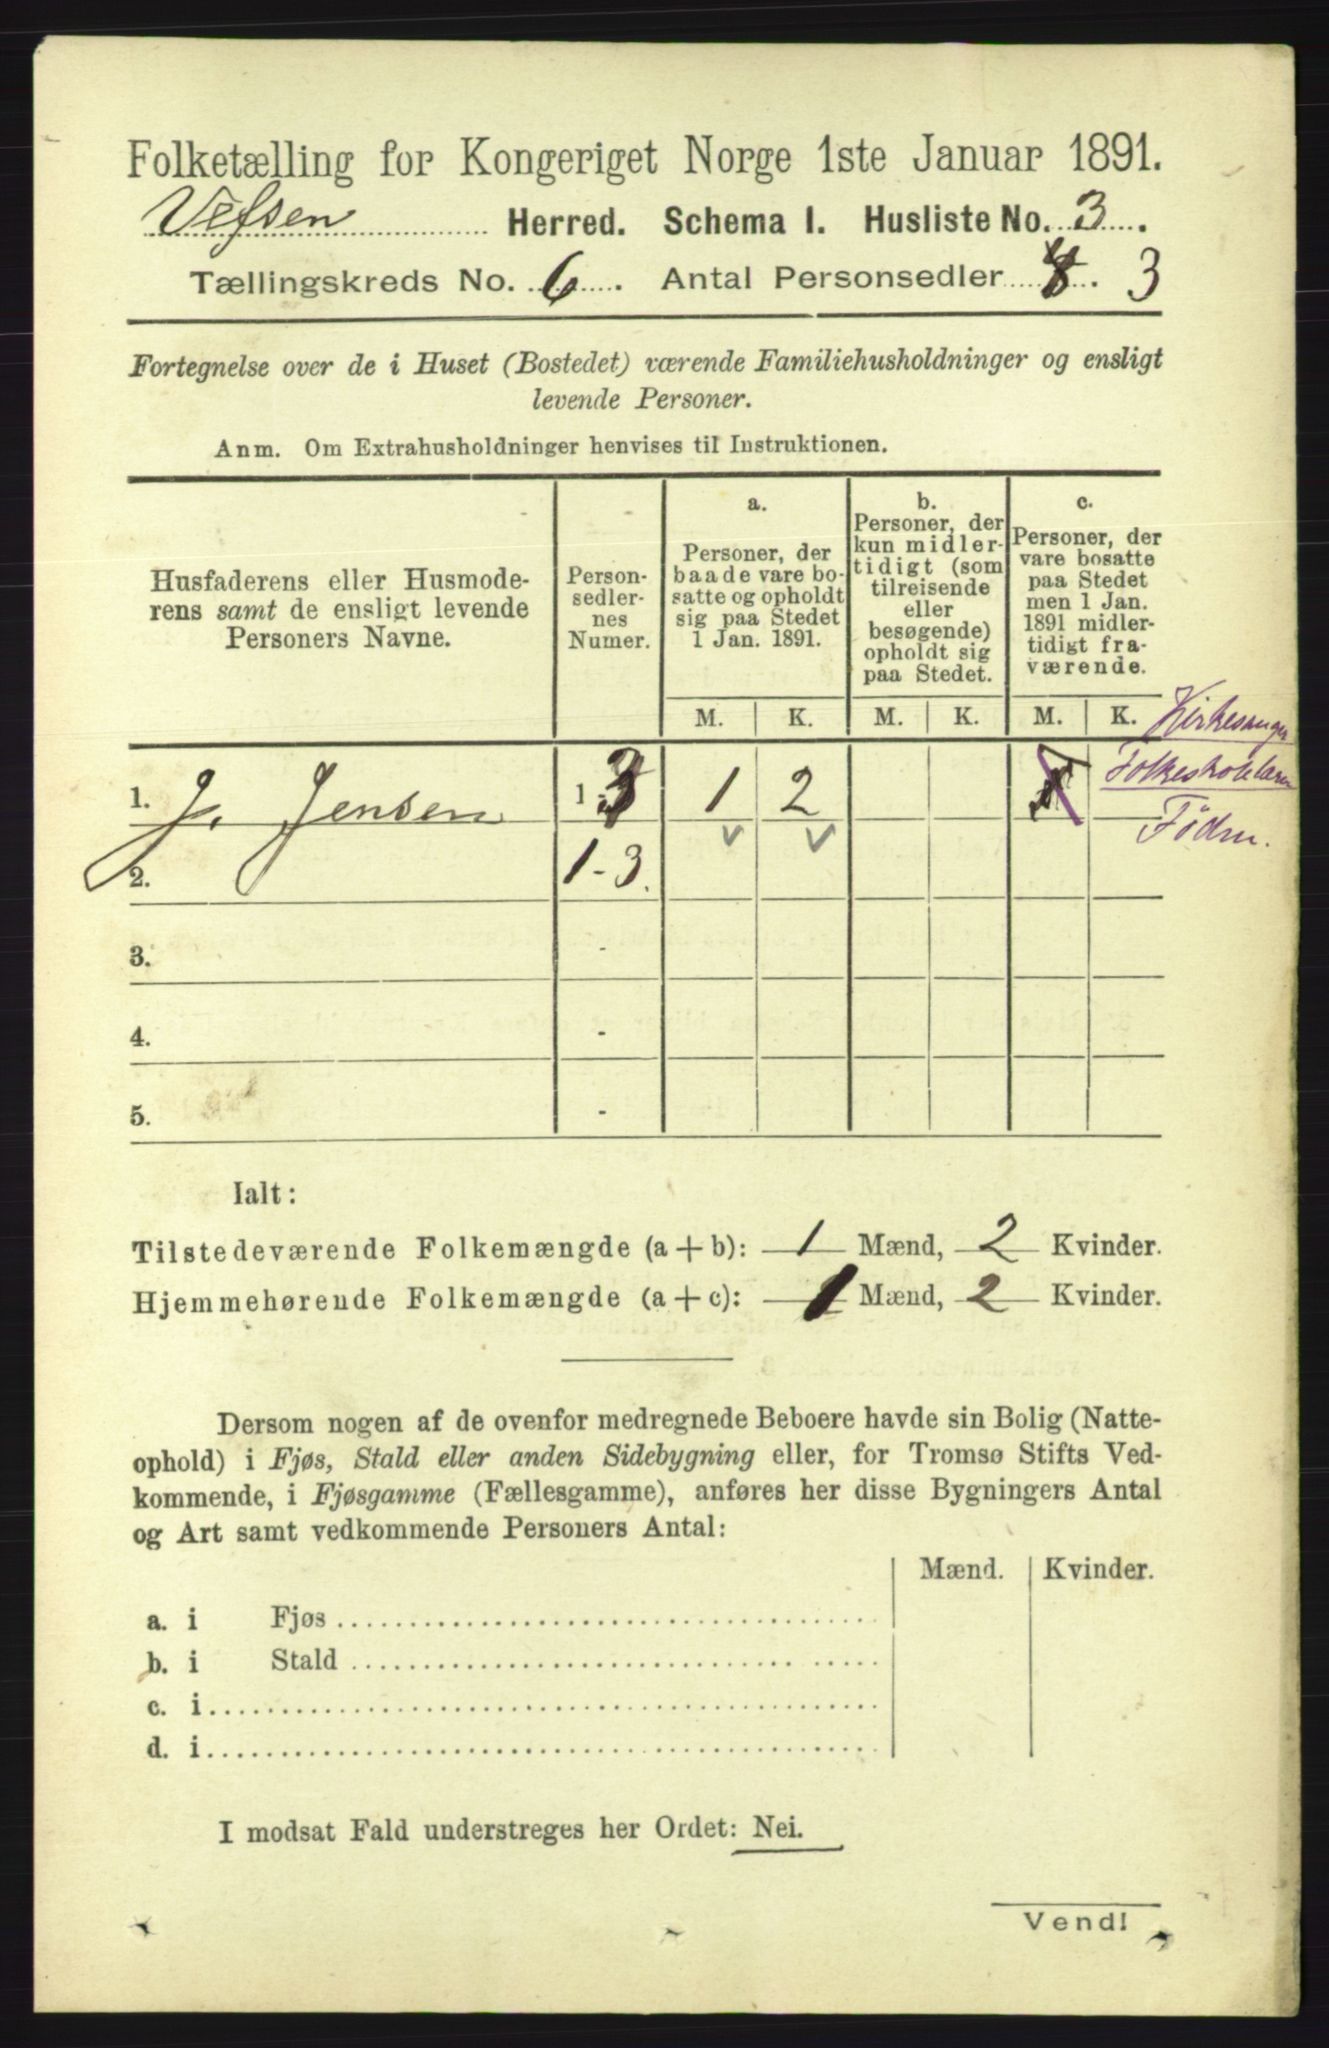 Folketælling for Kongeriget Norge 1ste Januar 1891.
Vefsen Herred. Schema I. Husliste No. 3.
Tællingskreds No. 6. Antal Personsedler 3
Fortegnelse over de i Huset (Bostedet) værende Familiehusholdninger og ensligt
levende Personer.
Anm. Om Extrahusholdninger henvises til Instruktionen.
Husfaderens eller Husmode-
rens samt de ensligt levende
Personers Navne.
Person-
sedler-
nes
Numer.
a.
Personer, der
baade vare bo-
satte og opholdt
sig paa Stedet
1 Jan. 1891.
b.
Personer, der
kun midler-
tidigt (som
tilreisende
eller
besøgende)
opholdt sig
paa Stedet.
c.
Personer, der
vare bosatte
paa Stedet
men 1 Jan.
1891 midler-
tidigt fra-
værende.
M. K. M. K. M. K.
Kirkesanger
Folkeskolelærer
1. J. Jensen 1-3 1 2
2. 1-3.
3. -
4. -
5. -
Ialt:
Tilstedeværende Folkemængde (a + b): 1 Mænd, 2 Kvinder.
Hjemmehørende Folkemængde (a + c): 1 Mænd, 2 Kvinder.
Dersom nogen af de ovenfor medregnede Beboere havde sin Bolig (Natte-
ophold) i Fjøs, Stald eller anden Sidebygning eller, for Tromsø Stifts Ved-
kommende, i Fjøsgamme (Fællesgamme), anføres her disse Bygningers Antal
og Art samt vedkommende Personers Antal:
Mænd. Kvinder.
a. i Fjøs
b. i Stald
c. i
d. i
I modsat Fald understreges her Ordet: Nei.
Vend!